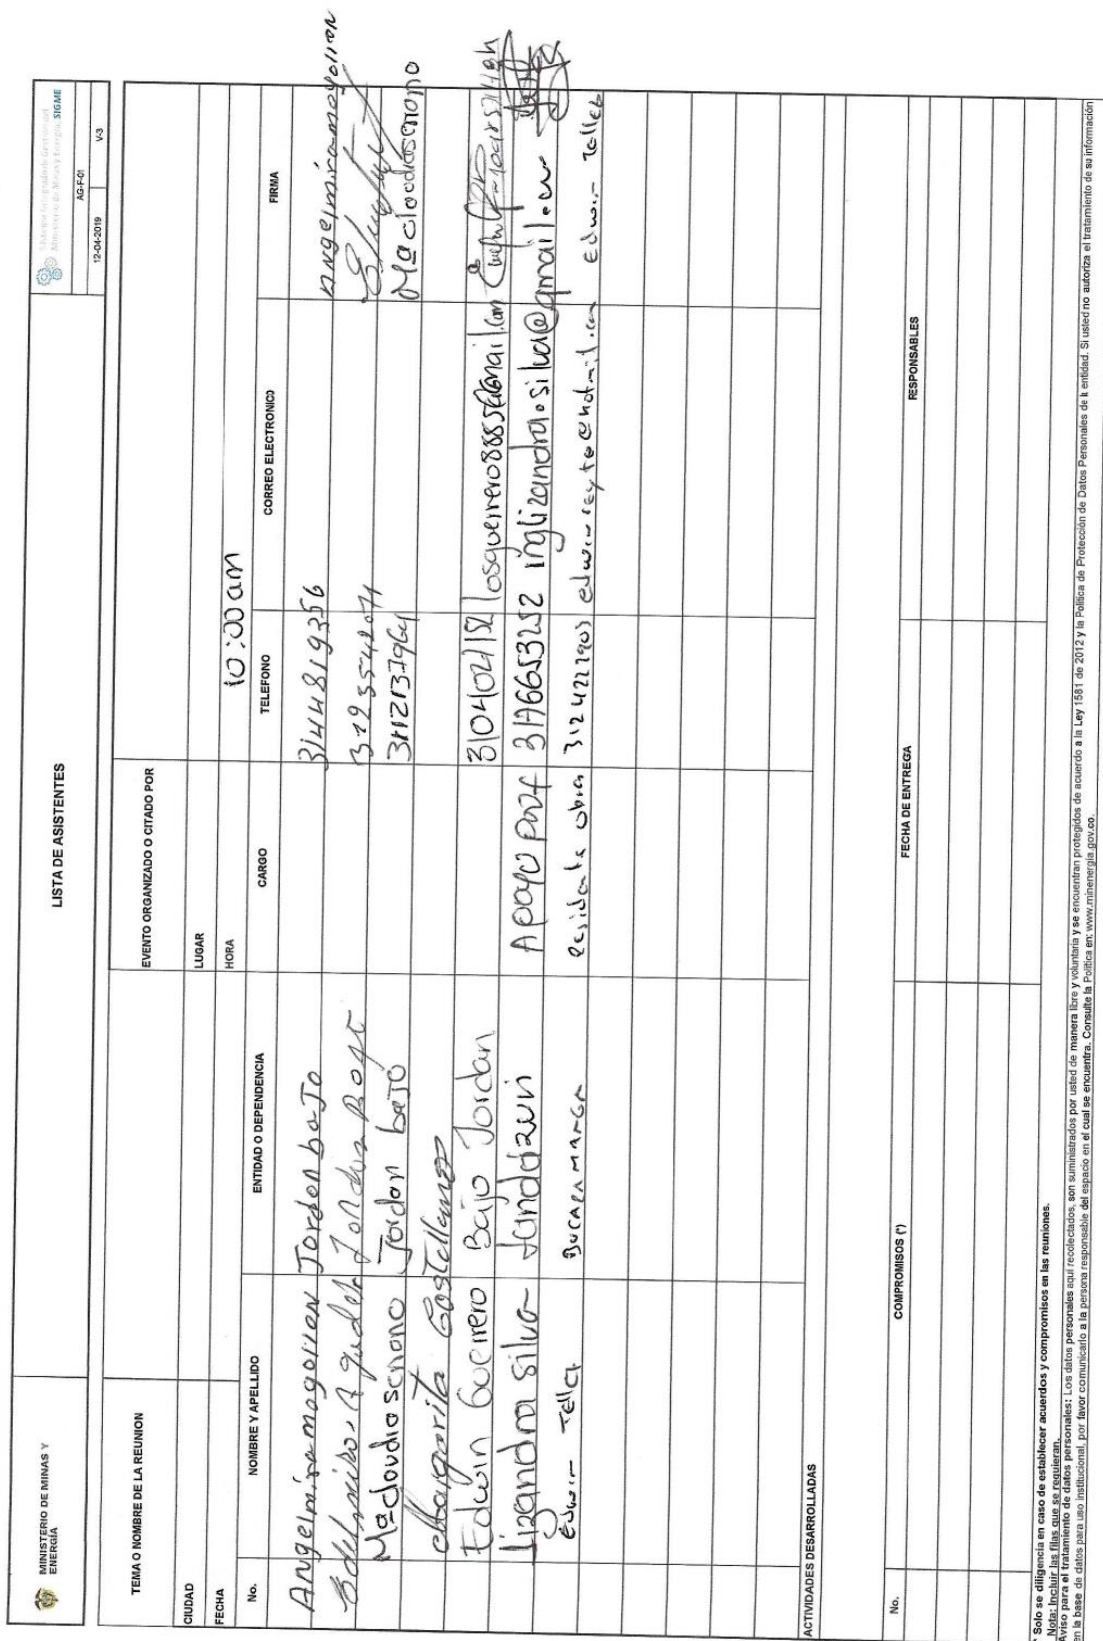 MINISTERIO DE MINAS Y ENERGÍA
LISTA DE ASISTENTES
Sistema Integrado de Gestión del
Ministerio de Minas y Energía. SIGME
AG-F-01
12-04-2019 V-3
TEMA O NOMBRE DE LA REUNION
EVENTO ORGANIZADO O CITADO POR
CIUDAD LUGAR
FECHA HORA 10:00 am
No. NOMBRE Y APELLIDO ENTIDAD O DEPENDENCIA CARGO TELEFONO CORREO ELECTRONICO FIRMA
Angelmira mogollon Jordon bajo 3144819356 Angelmira mogollon
Edelmira Jordan Bajo
Mª claudia serrano Jordan bajo Mª claudia serrano
Margarita Castellanos
Edwin Guerrero Bajo Jordan 3104021152
Lizandra silva Landázuri Apoyo Prof 3176653252 inglizandra.silva@gmail.com
Edwin Tellez BUCARAMANGA Residente obra 3124222903 Edwin Tellez
ACTIVIDADES DESARROLLADAS
No. COMPROMISOS (*) FECHA DE ENTREGA RESPONSABLES
* Solo se diligencia en caso de establecer acuerdos y compromisos en las reuniones.
Nota: Incluir las filas que se requieran.
Aviso para el tratamiento de datos personales: Los datos personales aquí recolectados, son suministrados por usted de manera libre y voluntaria y se encuentran protegidos de acuerdo a la Ley 1581 de 2012 y la Política de Protección de Datos Personales de la entidad. Si usted no autoriza el tratamiento de su información
en la base de datos para uso institucional, por favor comunicarlo a la persona responsable del espacio en el cual se encuentra. Consulte la Política en: www.minenergia.gov.co.